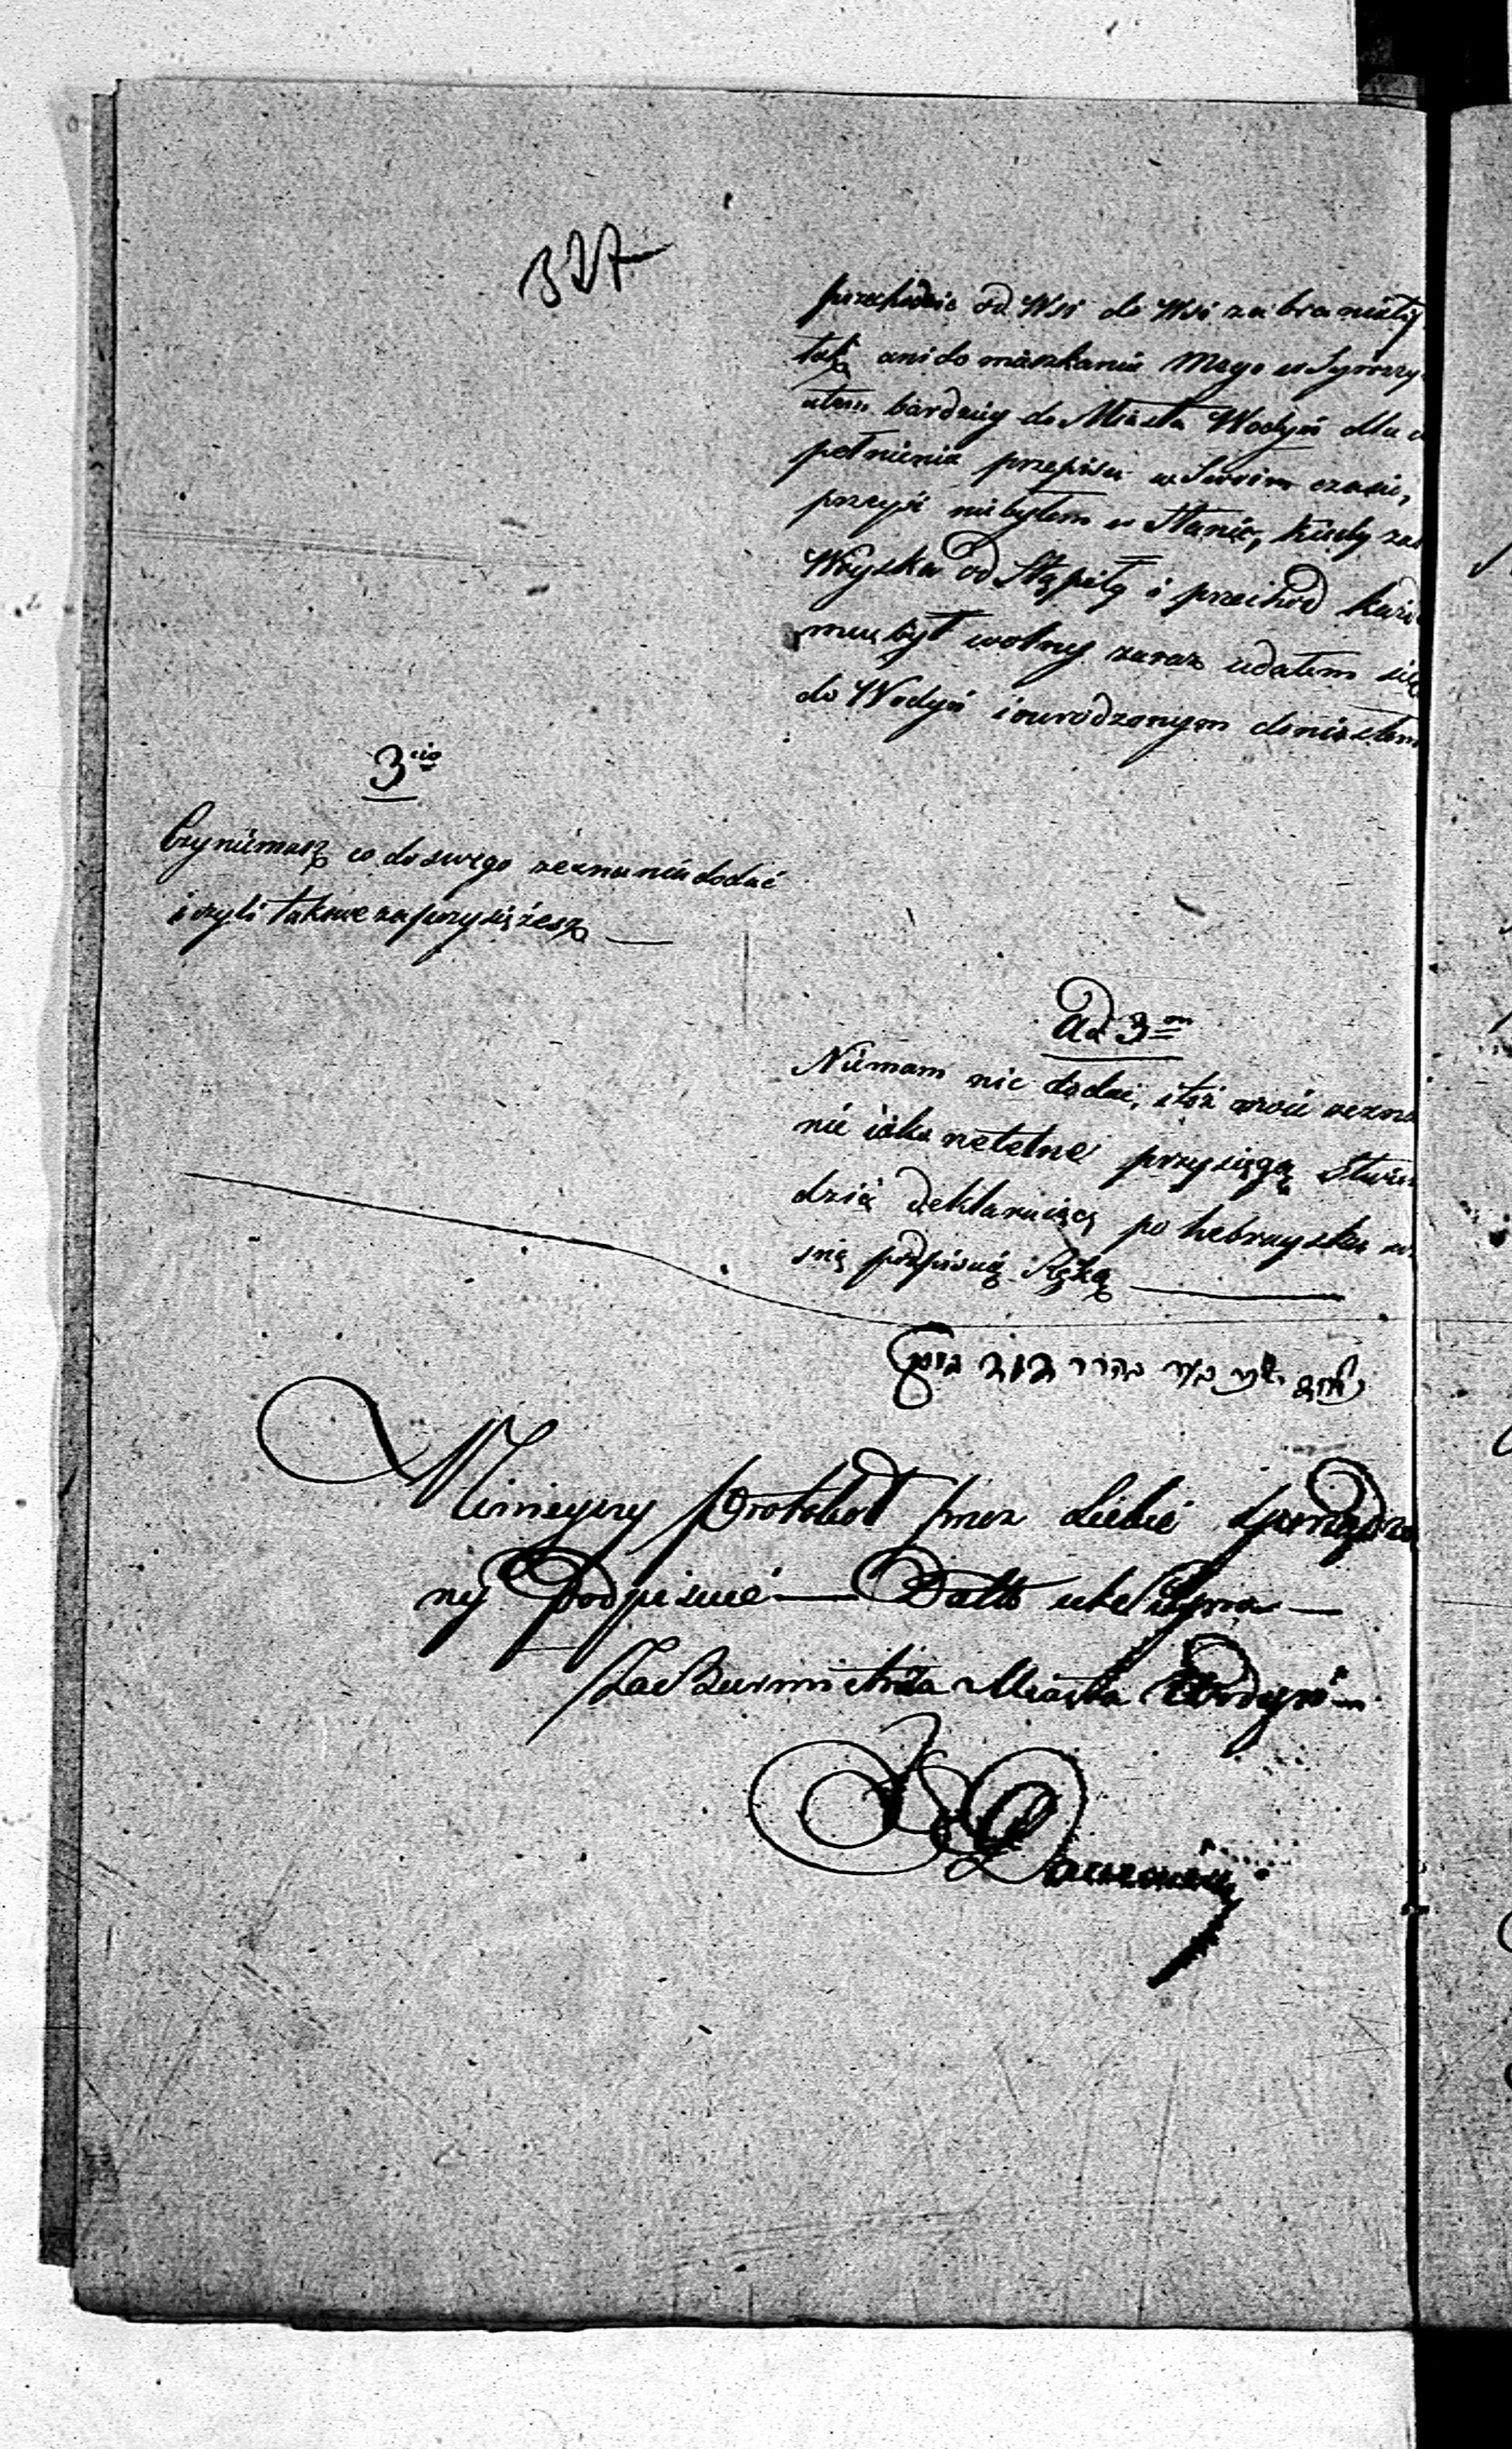 327
przechodzić od Wsi do Wsi zabraniały
tak ani do mieszkania Mego w
atem bardziey do Miasta Wodyń dla
pełnienia przepisu w Swoim czasie,
przyyść niebyłem w Stanie, kiedy zaś
Woyska od Stąpiłÿ i przechod każde
mu był wolny zaraz udałem się
do Wodyń i o urodzonym doniosłem
3cio
Czyniemasz co do swego zeznania dodać
i czyli takowe zaprzysiężesz —
ad 3m
Niemam nic dodać, i toż moie zezna
nie iako rzetelne przysięgą Stwier
dzić deklaruiącę po hebrayska
snię podpisuię Ręką —
Ninieyszy Protokół przez Siebie Sporządzo
ny Podpisuie — Datto ut Supra —
Za Burmistrza Miasta Wodyń